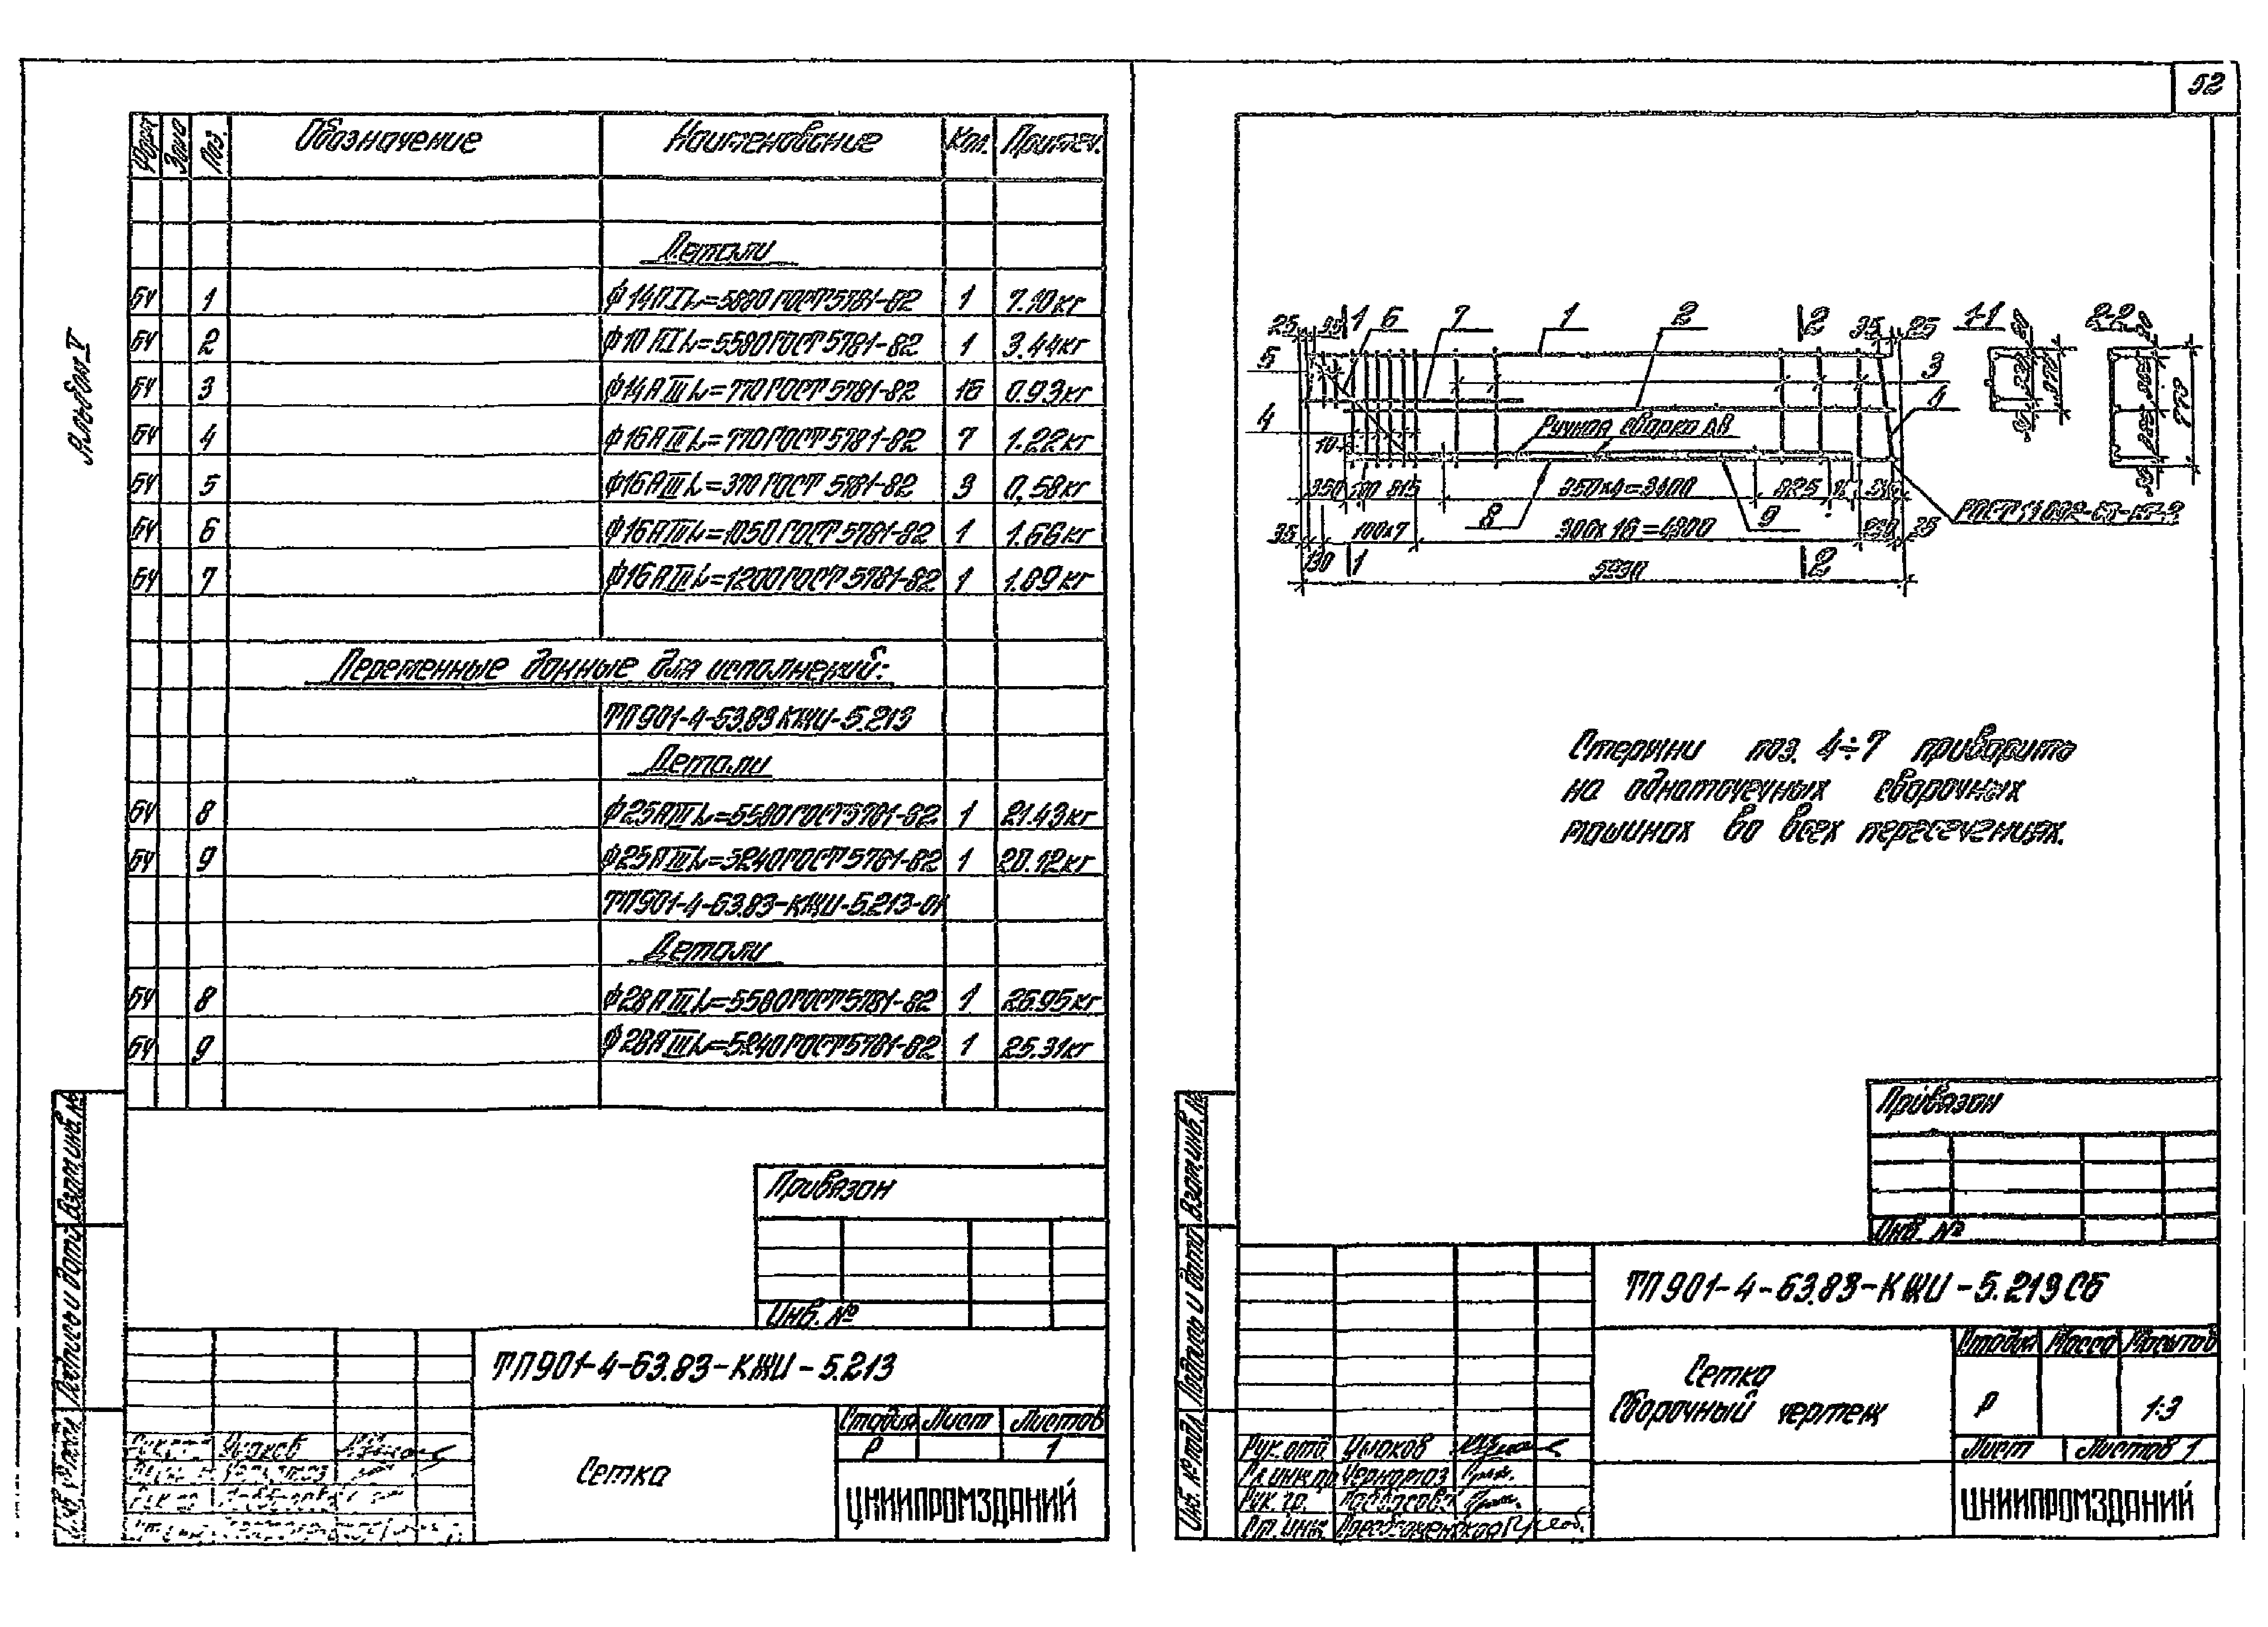 52
Альбом V
Форм. Зона Поз. Обозначение Наименование Кол. Примеч.
Детали
БЧ 1 ф14АI L=5880 ГОСТ 5781-82 1 7.10кг
БЧ 2 ф10АI L=5580 ГОСТ 5781-82 1 3.44кг
БЧ 3 ф14АIII L=770 ГОСТ 5781-82 16 0.93кг
БЧ 4 ф16АIII L=770 ГОСТ 5781-82 7 1.22кг
БЧ 5 ф16АIII L=370 ГОСТ 5781-82 3 0.58кг
БЧ 6 ф16АIII L=1050 ГОСТ 5781-82 1 1.66кг
БЧ 7 ф16АIII L=1200 ГОСТ 5781-82 1 1.89кг
Переменные данные для исполнений:
ТП901-4-63.83 КЖИ-5.213
Детали
БЧ 8 ф25АIII L=5580 ГОСТ 5781-82 1 21.43кг
БЧ 9 ф25АIII L=5240 ГОСТ 5781-82 1 20.12кг
ТП901-4-63.83-КЖИ-5.213-01
Детали
БЧ 8 ф28АIII L=5580 ГОСТ 5781-82 1 26.95кг
БЧ 9 ф28АIII L=5240 ГОСТ 5781-82 1 25.31кг
Привязан
Инв. №
ТП901-4-63.83-КЖИ-5.213
Сетка
Стадия Лист Листов
Р 1
ЦНИИПРОМЗДАНИЙ
Взам.инв.№
Подпись и дата
25 35 1 6 7 1 2 2 35 25 1-1 2-2
5 3
4 4
Ручная сварка ДВ
10
350 100 815 850х4=3400 825
8 9
35 100х7 300х16=4800 35
130 1 5930 2
Стержни поз. 4÷7 приварить
на одноточечных сварочных
машинах во всех пересечениях.
Привязан
Инв. №
ТП901-4-63.83-КЖИ-5.213СБ
Сетка
Сборочный чертеж
Стадия Масса Масштаб
Р 1:3
Лист Листов 1
ЦНИИПРОМЗДАНИЙ
Рук.отд.
Гл.инж.пр
Рук.гр.
Ст.инж.
Взам.инв.№
Подпись и дата
Инв. № подл.